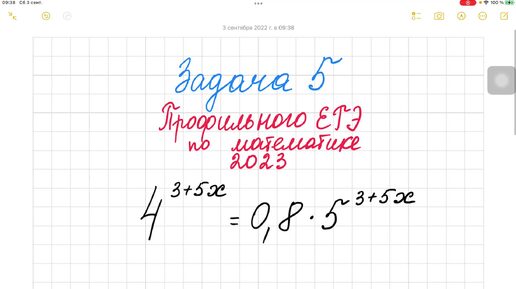 09:38 Сб 3 сент.
100 %
3 сентября 2022 г. в 09:38
Задача 5
Профильного ЕГЭ
по математике
2023
4^{3+5x} = 0,8 · 5^{3+5x}